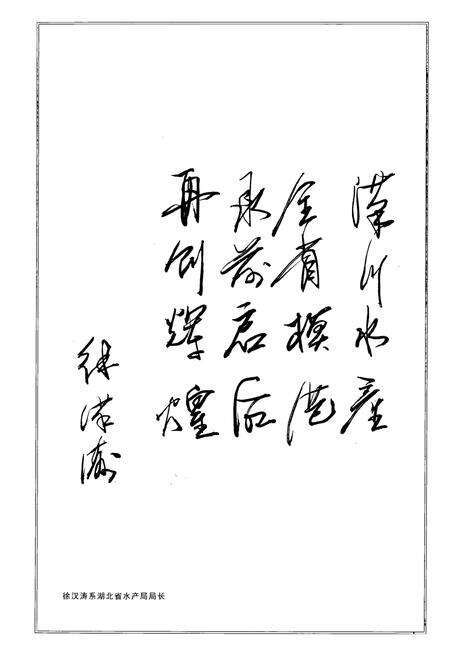 漢川水產
全省模范
承前启后
再创辉煌
徐汉涛
徐汉涛系湖北省水产局局长